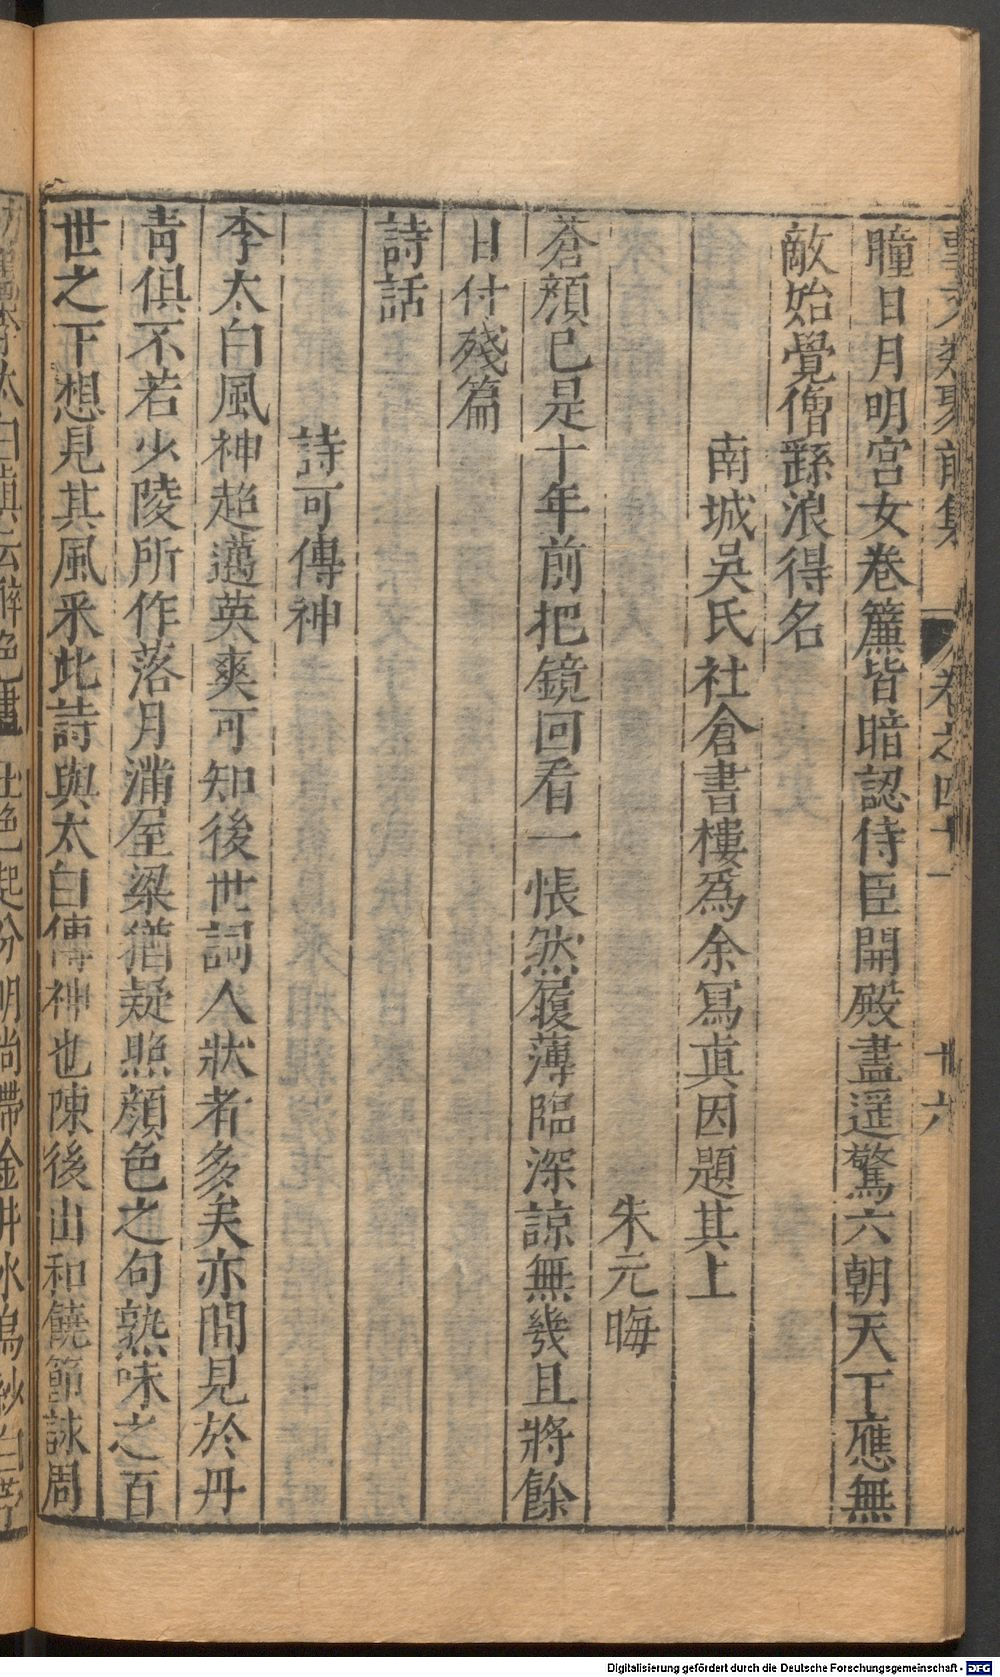 事文類聚前集 卷之四十一 廿六
瞳日月明宮女卷簾皆暗認侍臣開殿盡遥驚六朝天下應無
敵始覺僧繇浪得名
南城吳氏社倉書樓爲余冩真因題其上
朱元晦
蒼顔已是十年前把鏡回看一悵然履薄臨深諒無幾且將餘
日付殘篇
詩話
詩可傳神
李太白風神超邁英爽可知後世詞人狀者多矣亦間見於丹
青俱不若少陵所作落月滿屋梁猶疑照顔色之句熟味之百
世之下想見其風采此詩與太白傳神也陳後山和饒節詠周
Digitalisierung gefördert durch die Deutsche Forschungsgemeinschaft - DFG